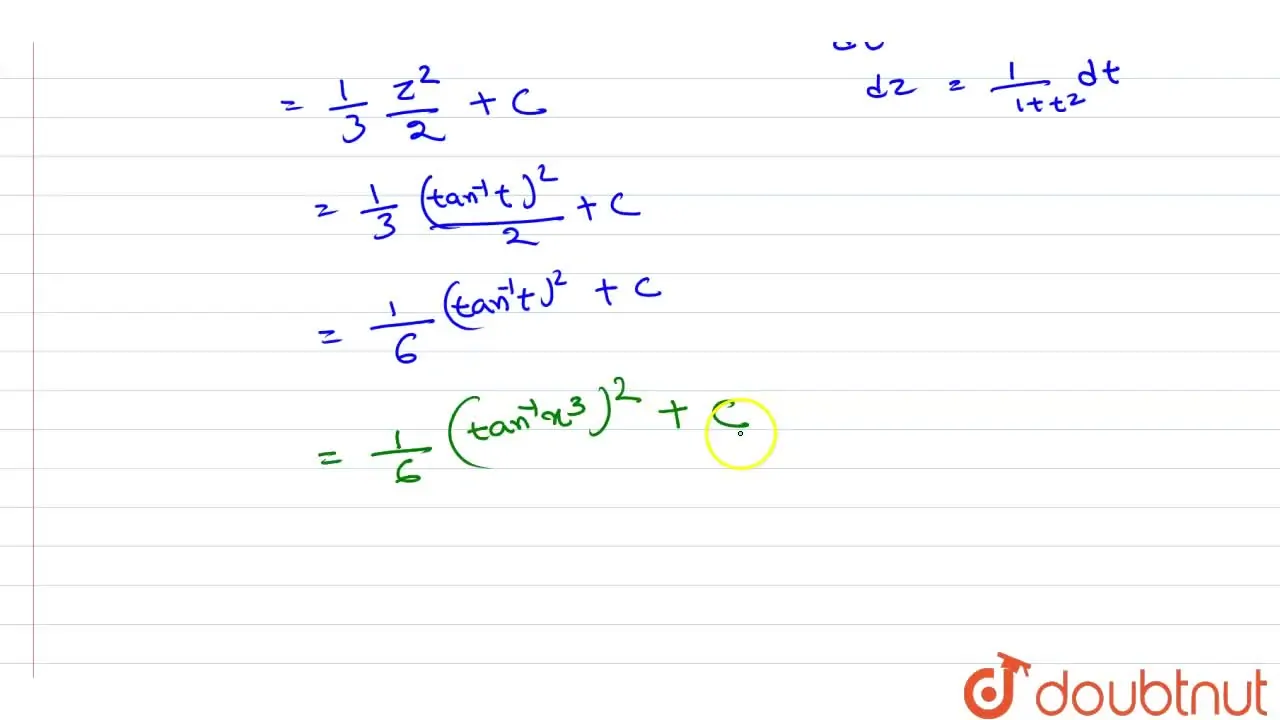 = 1/3 z²/2 + C
dz = 1/1+t² dt
= 1/3 (tan⁻¹t)²/2 + C
= 1/6 (tan⁻¹t)² + C
= 1/6 (tan⁻¹x³)² + C
doubtnut